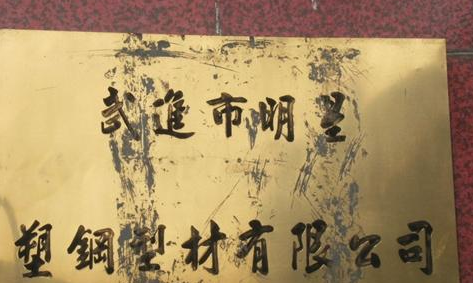 武進市明星
塑鋼型材有限公司